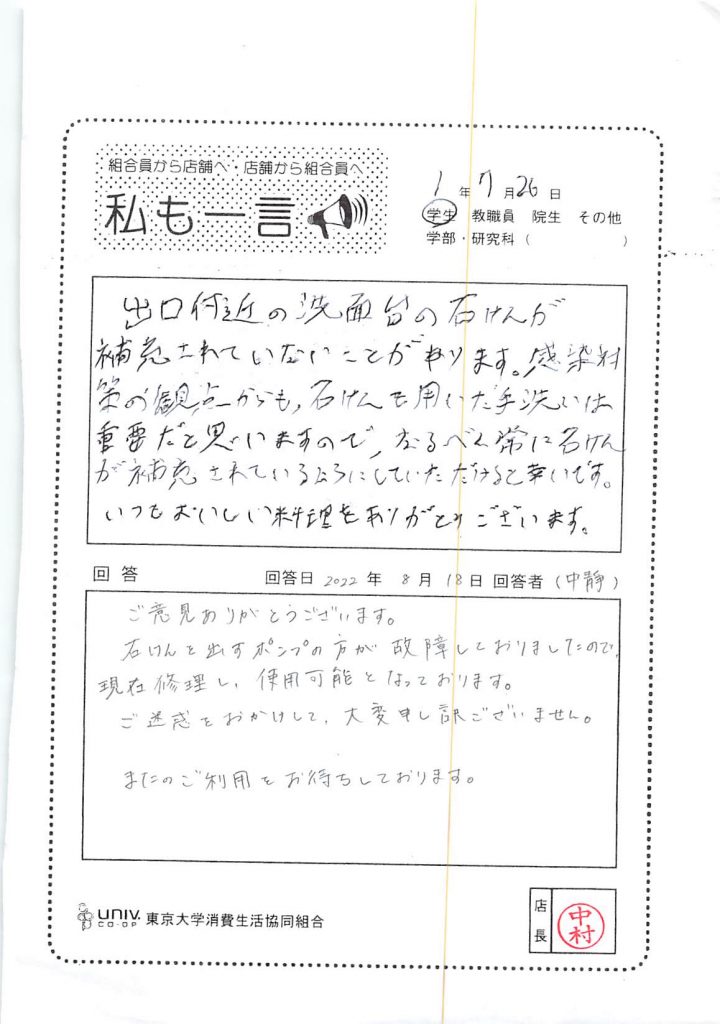 組合員から店舗へ・店舗から組合員へ
私も一言
1年7月26日
学生 教職員 院生 その他
学部・研究科( )
出口付近の洗面台の石けんが
補充されていないことがあります。感染対
策の観点からも、石けんを用いた手洗いは
重要だと思いますので、なるべく常に石けん
が補充されているようにしていただけると幸いです。
いつもおいしい料理をありがとうございます。
回答 回答日 2022年 8月18日 回答者(中靜)
ご意見ありがとうございます。
石けんを出すポンプの方が故障しておりましたので、
現在修理し、使用可能となっております。
ご迷惑をおかけして、大変申し訳ございません。
またのご利用をお待ちしております。
UNIV. CO-OP 東京大学消費生活協同組合
店長 中村